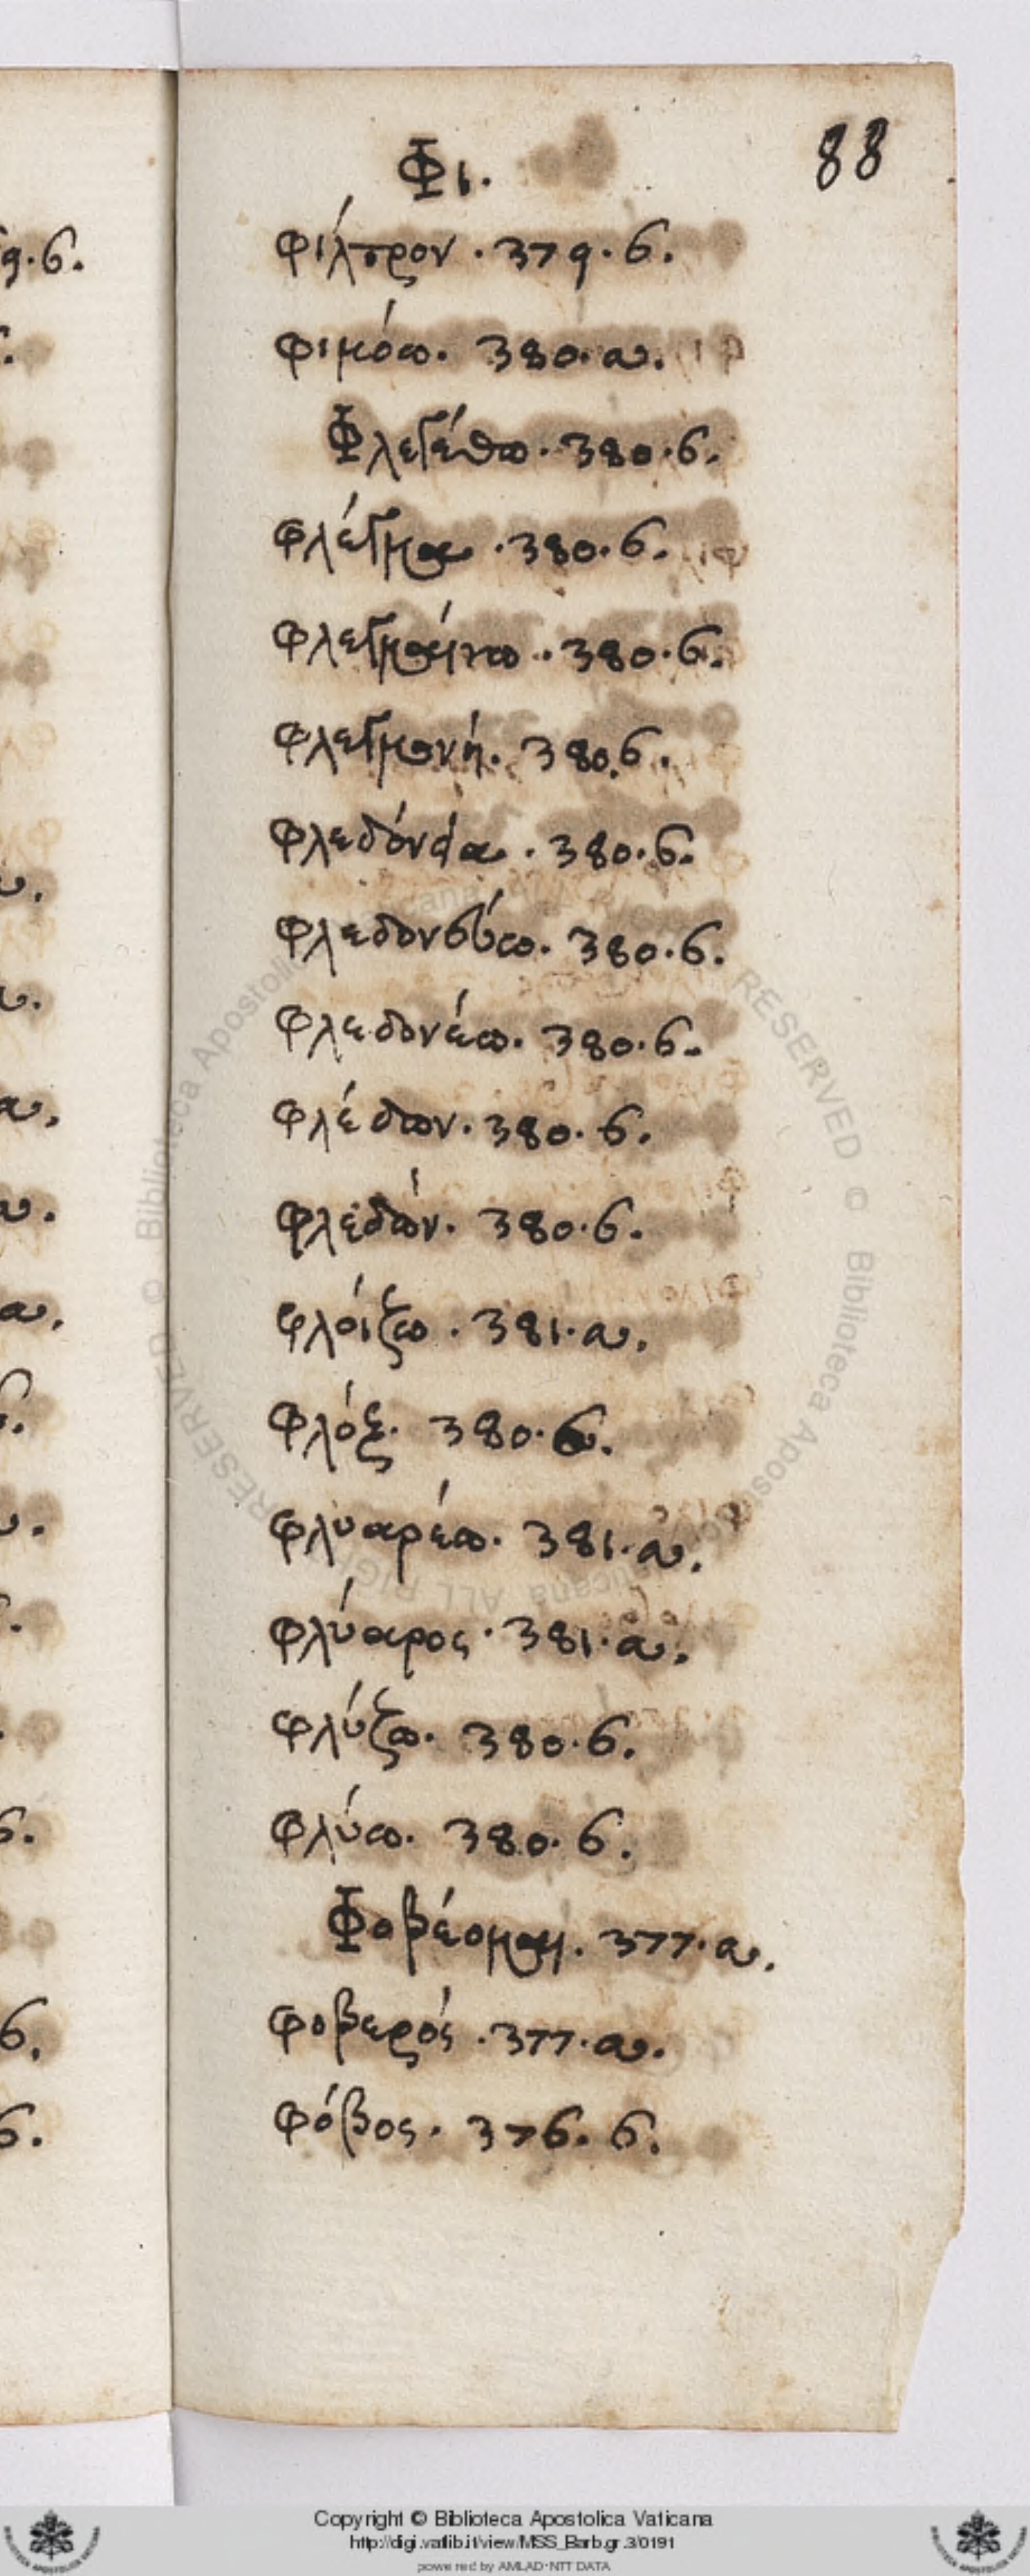 88
Φι.
9.6.
φίλτρον . 379. 6.
φιμόω. 380. α.
Φλεγέθω. 380. 6.
φλέγμα . 380. 6.
φλεγμαίνω . 380. 6.
φλεγμονή. 380. 6.
φλεδόνεια . 380. 6.
φλεδονεύω. 380. 6.
φλεδονέω. 380. 6.
φλέδων. 380. 6.
φλεδών. 380. 6.
φλοίζω . 381. α.
φλόξ. 380. 6.
φλυαρέω. 381. α.
φλύαρος . 381. α.
φλύζω. 380. 6.
φλύω. 380. 6.
Φοβέομαι. 377. α.
φοβερός . 377. α.
φόβος. 376. 6.
Copyright © Biblioteca Apostolica Vaticana
http://digi.vatlib.it/view/MSS_Barb.gr.3/0191
powered by AMLAD-NTT DATA